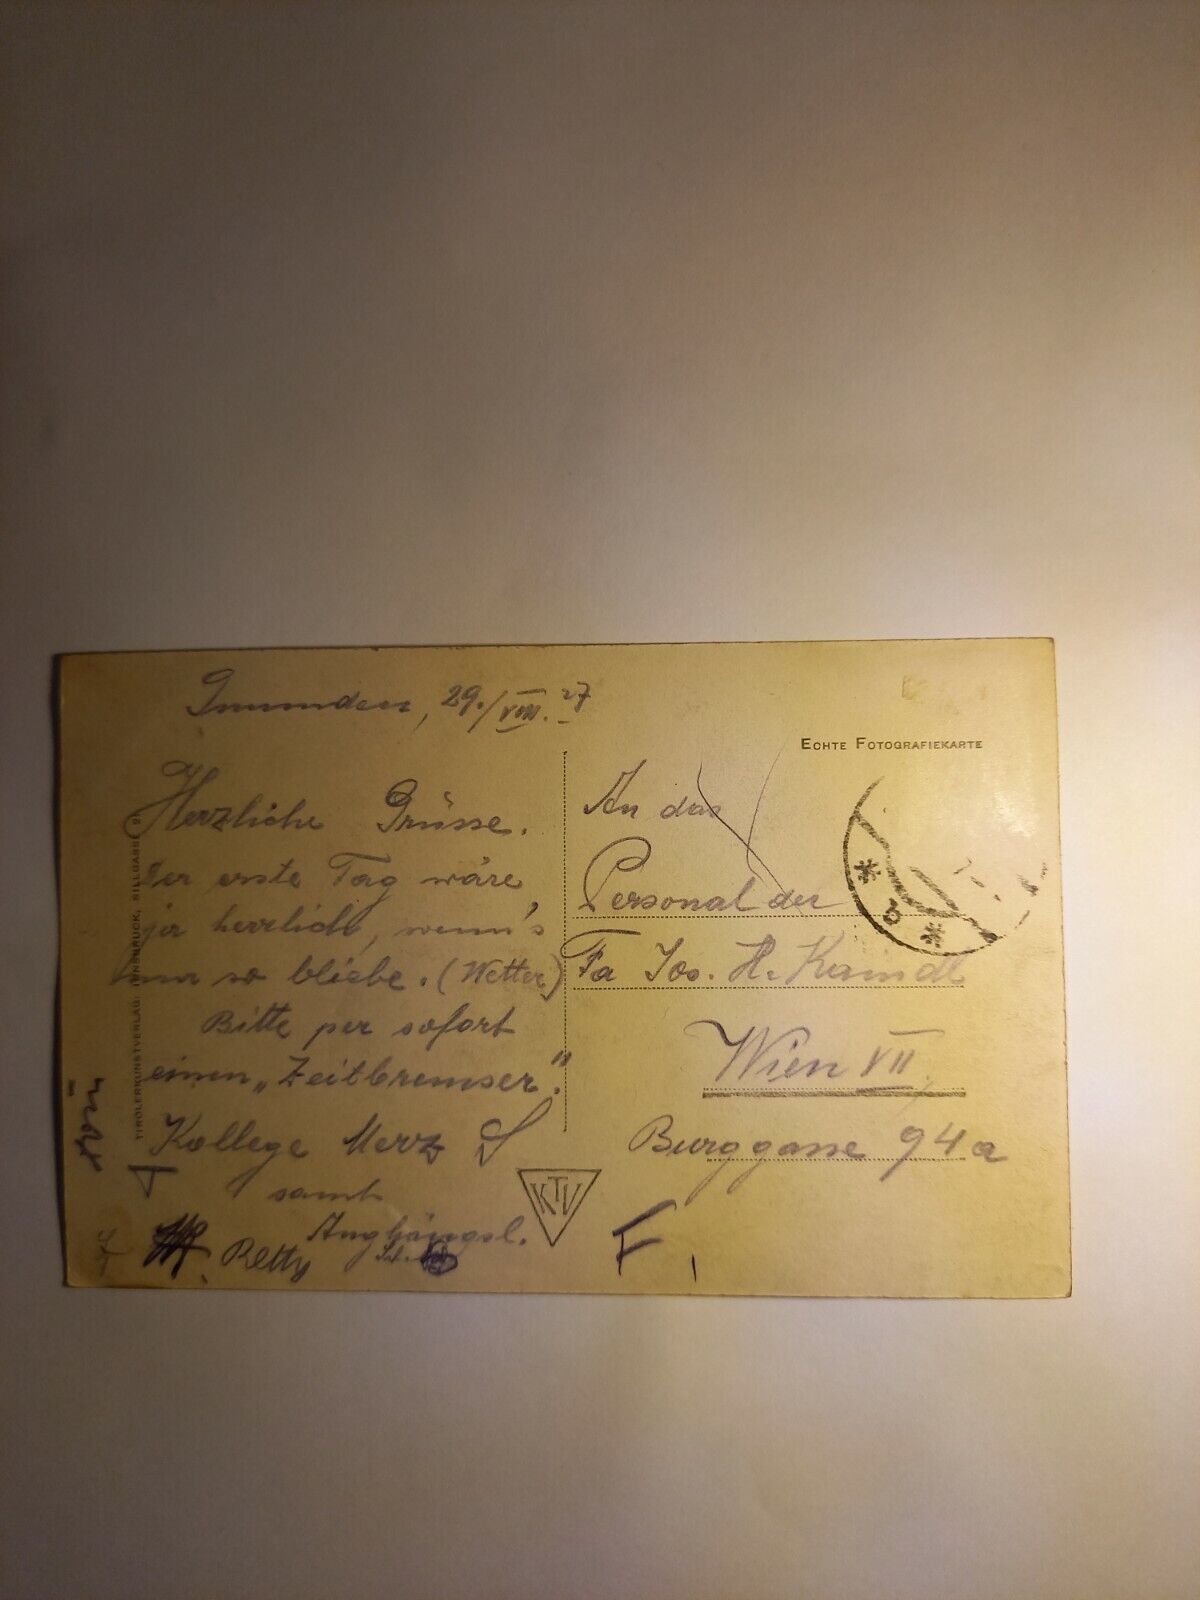 Gmunden, 29./VIII. 27
Herzliche Grüsse.
Der erste Tag wäre
ja herrlich, wenn's
nur so bliebe. (Wetter)
Bitte per sofort
einen „Zeitbremser."
Kollege Merz
samt
Anghängsl.
Betty
TIROLERKUNSTVERLAG: INNSBRUCK, SILLGASSE
KTV
ECHTE FOTOGRAFIEKARTE
An das
Personal der
Fa Jos. H. Kaindl
Wien VII.
Burggasse 94a
F.
* b *